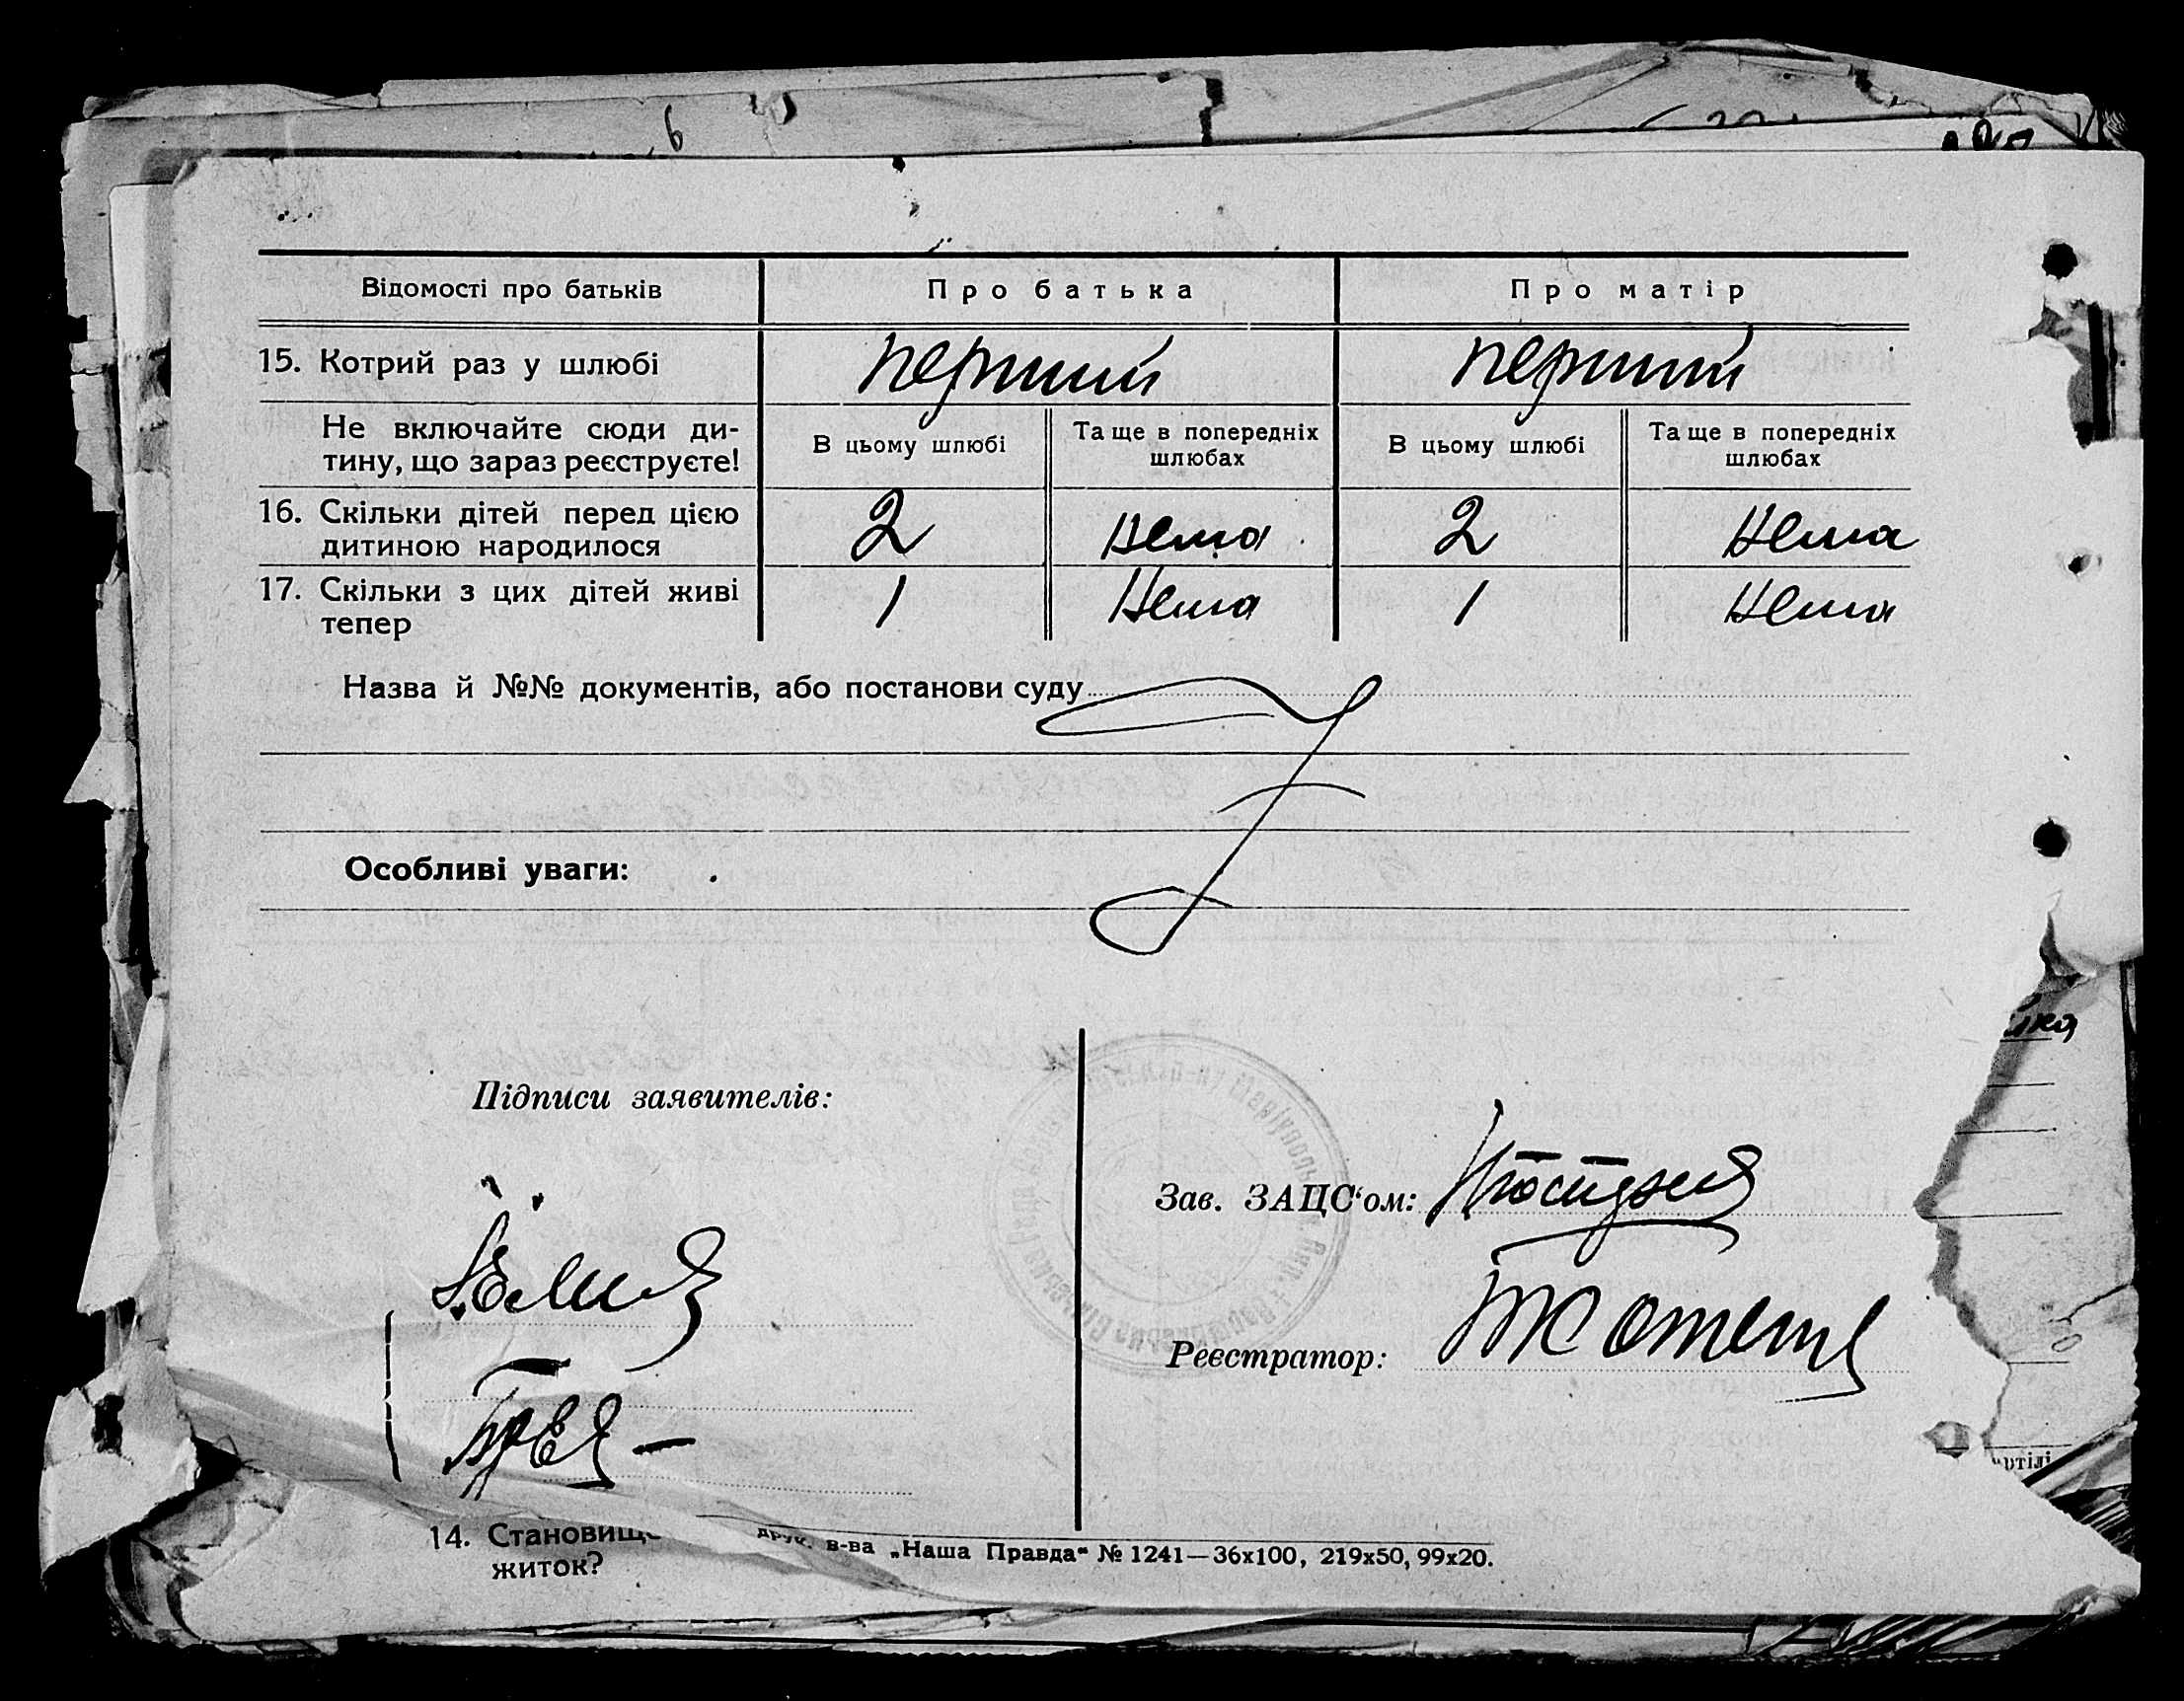 Відомості про батьків Про батька Про матір
15. Котрий раз у шлюбі перший перший
Не включайте сюди ди-
тину, що зараз реєструєте!
В цьому шлюбі
Та ще в попередніх
шлюбах
В цьому шлюбі
Та ще в попередніх
шлюбах
16. Скільки дітей перед цією
дитиною народилося
2 Нема 2 Нема
17. Скільки з цих дітей живі
тепер
1 Нема 1 Нема
Назва й №№ документів, або постанови суду
Особливі уваги:
Підписи заявителів:
Зав. ЗАЦС‘ом:
Реєстратор:
14. Становищ
житок?
друк. в-ва „Наша Правда“ № 1241—36х100, 219х50, 99х20.